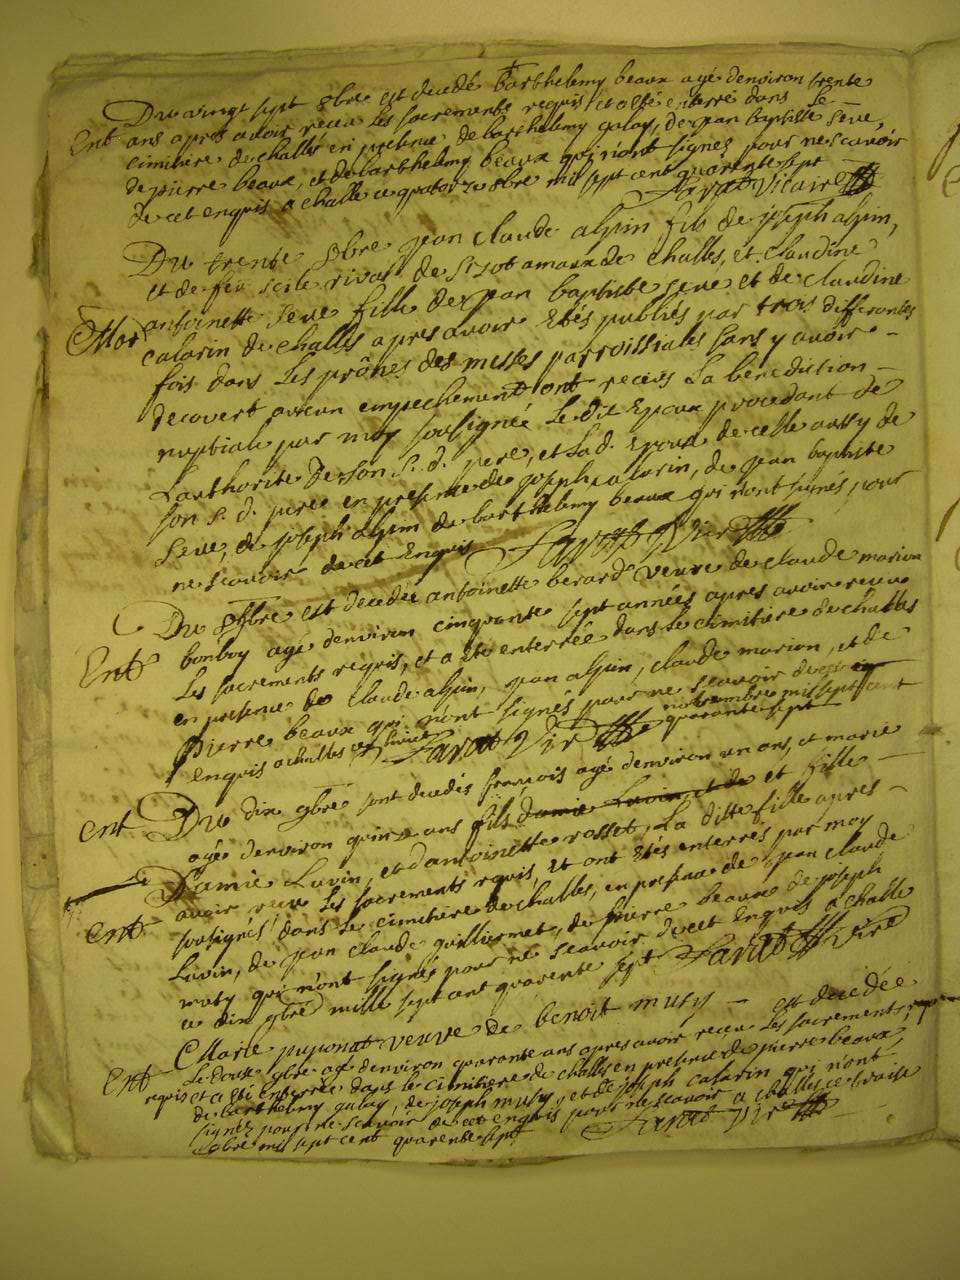 Du vingt sept 8bre est decedé barthelemy beaux agé denviron trente
Ent ans apres avoir receu les sacrements requis, et a esté enterré dans le
cimitiere de challes en presence de barthelemy galay, de jean baptiste seve,
de pierre beaux, et de barthelemy beaux qui n'ont signés pour ne scavoir
de cet enquis a challe ce quatorze 8bre mil sept cent quarente sept
Favat Vicaire
Du trente 8bre jean claude alpin fils de joseph alpin,
et de feu rivat de Sizod amaux de challes, et claudine
Mar antoinette seve fille de jean baptiste seve et de claudine
calarin de challes apres avoir etés publiés par trois differantes
fois dans les prônes des messes parroissiales sans y avoir
decovert aucun empechement ont receus la benediction
nuptiale par moy soussigné le dit Epoux procedant de
l'authorité de son s. d. pere, et la d. Epouse de celle aussy de
son s. d. pere en presence de joseph calarin, de jean baptiste
seve, de joseph alpin de barthelemy beaux qui n'ont signés pour
ne scavoir de cet Enquis Favat Vire
Du 9bre est decedée antoinette berard veuve de claude marion
bonboy agé denviron cinquante sept années apres avoir receu
Ent les sacrements requis, et a ete enterrée dans le cimitiere de challes
en presence de claude alpin, jean alpin, claude marion, et de
pierre beaux qui n'ont signés pour ne scavoir de cet
enquis a challes novembre mil sept cent
quarante sept Favat Vire
Ent Du dix 9bre sont decedés françois agé denviron un ans, et marie
agée denviron quinze ans fils damie Luvin, et de et fille
d'amie Luvin, et dantoinette rosset, La ditte fille apres
avoir receu les sacrements requis, et ont etés enterrés par moy
Ent soussigné dans le cimitiere de challes, en presence de jean claude
Luvin, de jean claude guilliermet, de pierre beaux de joseph
muty qui n'ont signés pour ne scavoir de cet Enquis a challe
ce dix 9bre mille sept cent quarente sept Favat Vire
Marie pujonat veuve de benoit musy - est decedée
Ent Le douze 9bre agé denviron quarante ans apres avoir receu les sacrements
requis et a eté enterrée dans le cimitiere de challes en presence de pierre beaux,
de barthelemy galay, de joseph musy, et de joseph calarin qui n'ont
signez pour ne scavoir de cet enquis pour ne scavoir a challes ce treize
9bre mil sept cent quarente sept Favat Vire